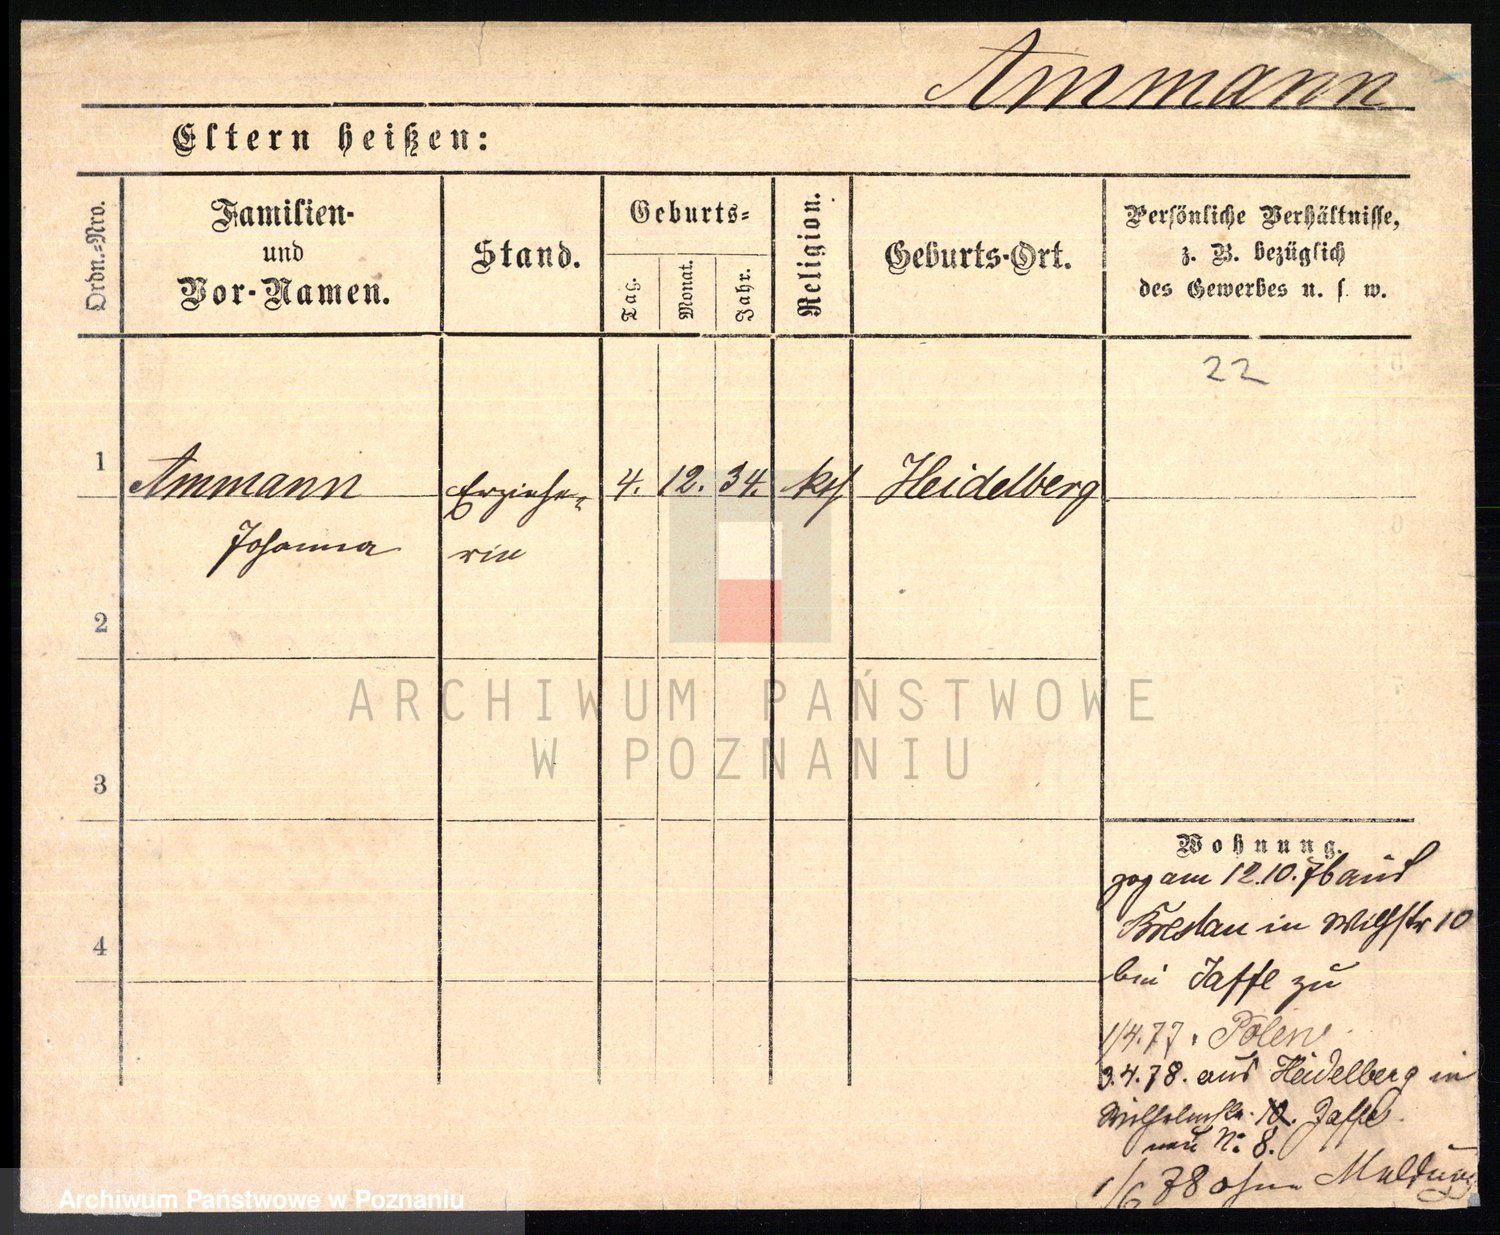 Ammann
Eltern heißen:
Ordn.-Nro.
Familien-
und
Vor-Namen.
Stand.
Geburts-
Tag.
Monat.
Jahr.
Religion.
Geburts-Ort.
Persönliche Verhältnisse,
z. B. bezüglich
des Gewerbes u. s. w.
22
1 Ammann Erziehe- 4. 12. 34. kth Heidelberg
Johanna rin
2
3
4
Wohnung.
zog am 12.10.76 aus
Breslau in Wilhstr 10
bei Jaffe zu
1/4.77. Polen
3.4.78. aus Heidelberg in
Wilhelmstr. 10. Jaffe.
neu No 8.
1/6 78 ohne Meldung
ARCHIWUM PAŃSTWOWE
W POZNANIU
Archiwum Państwowe w Poznaniu